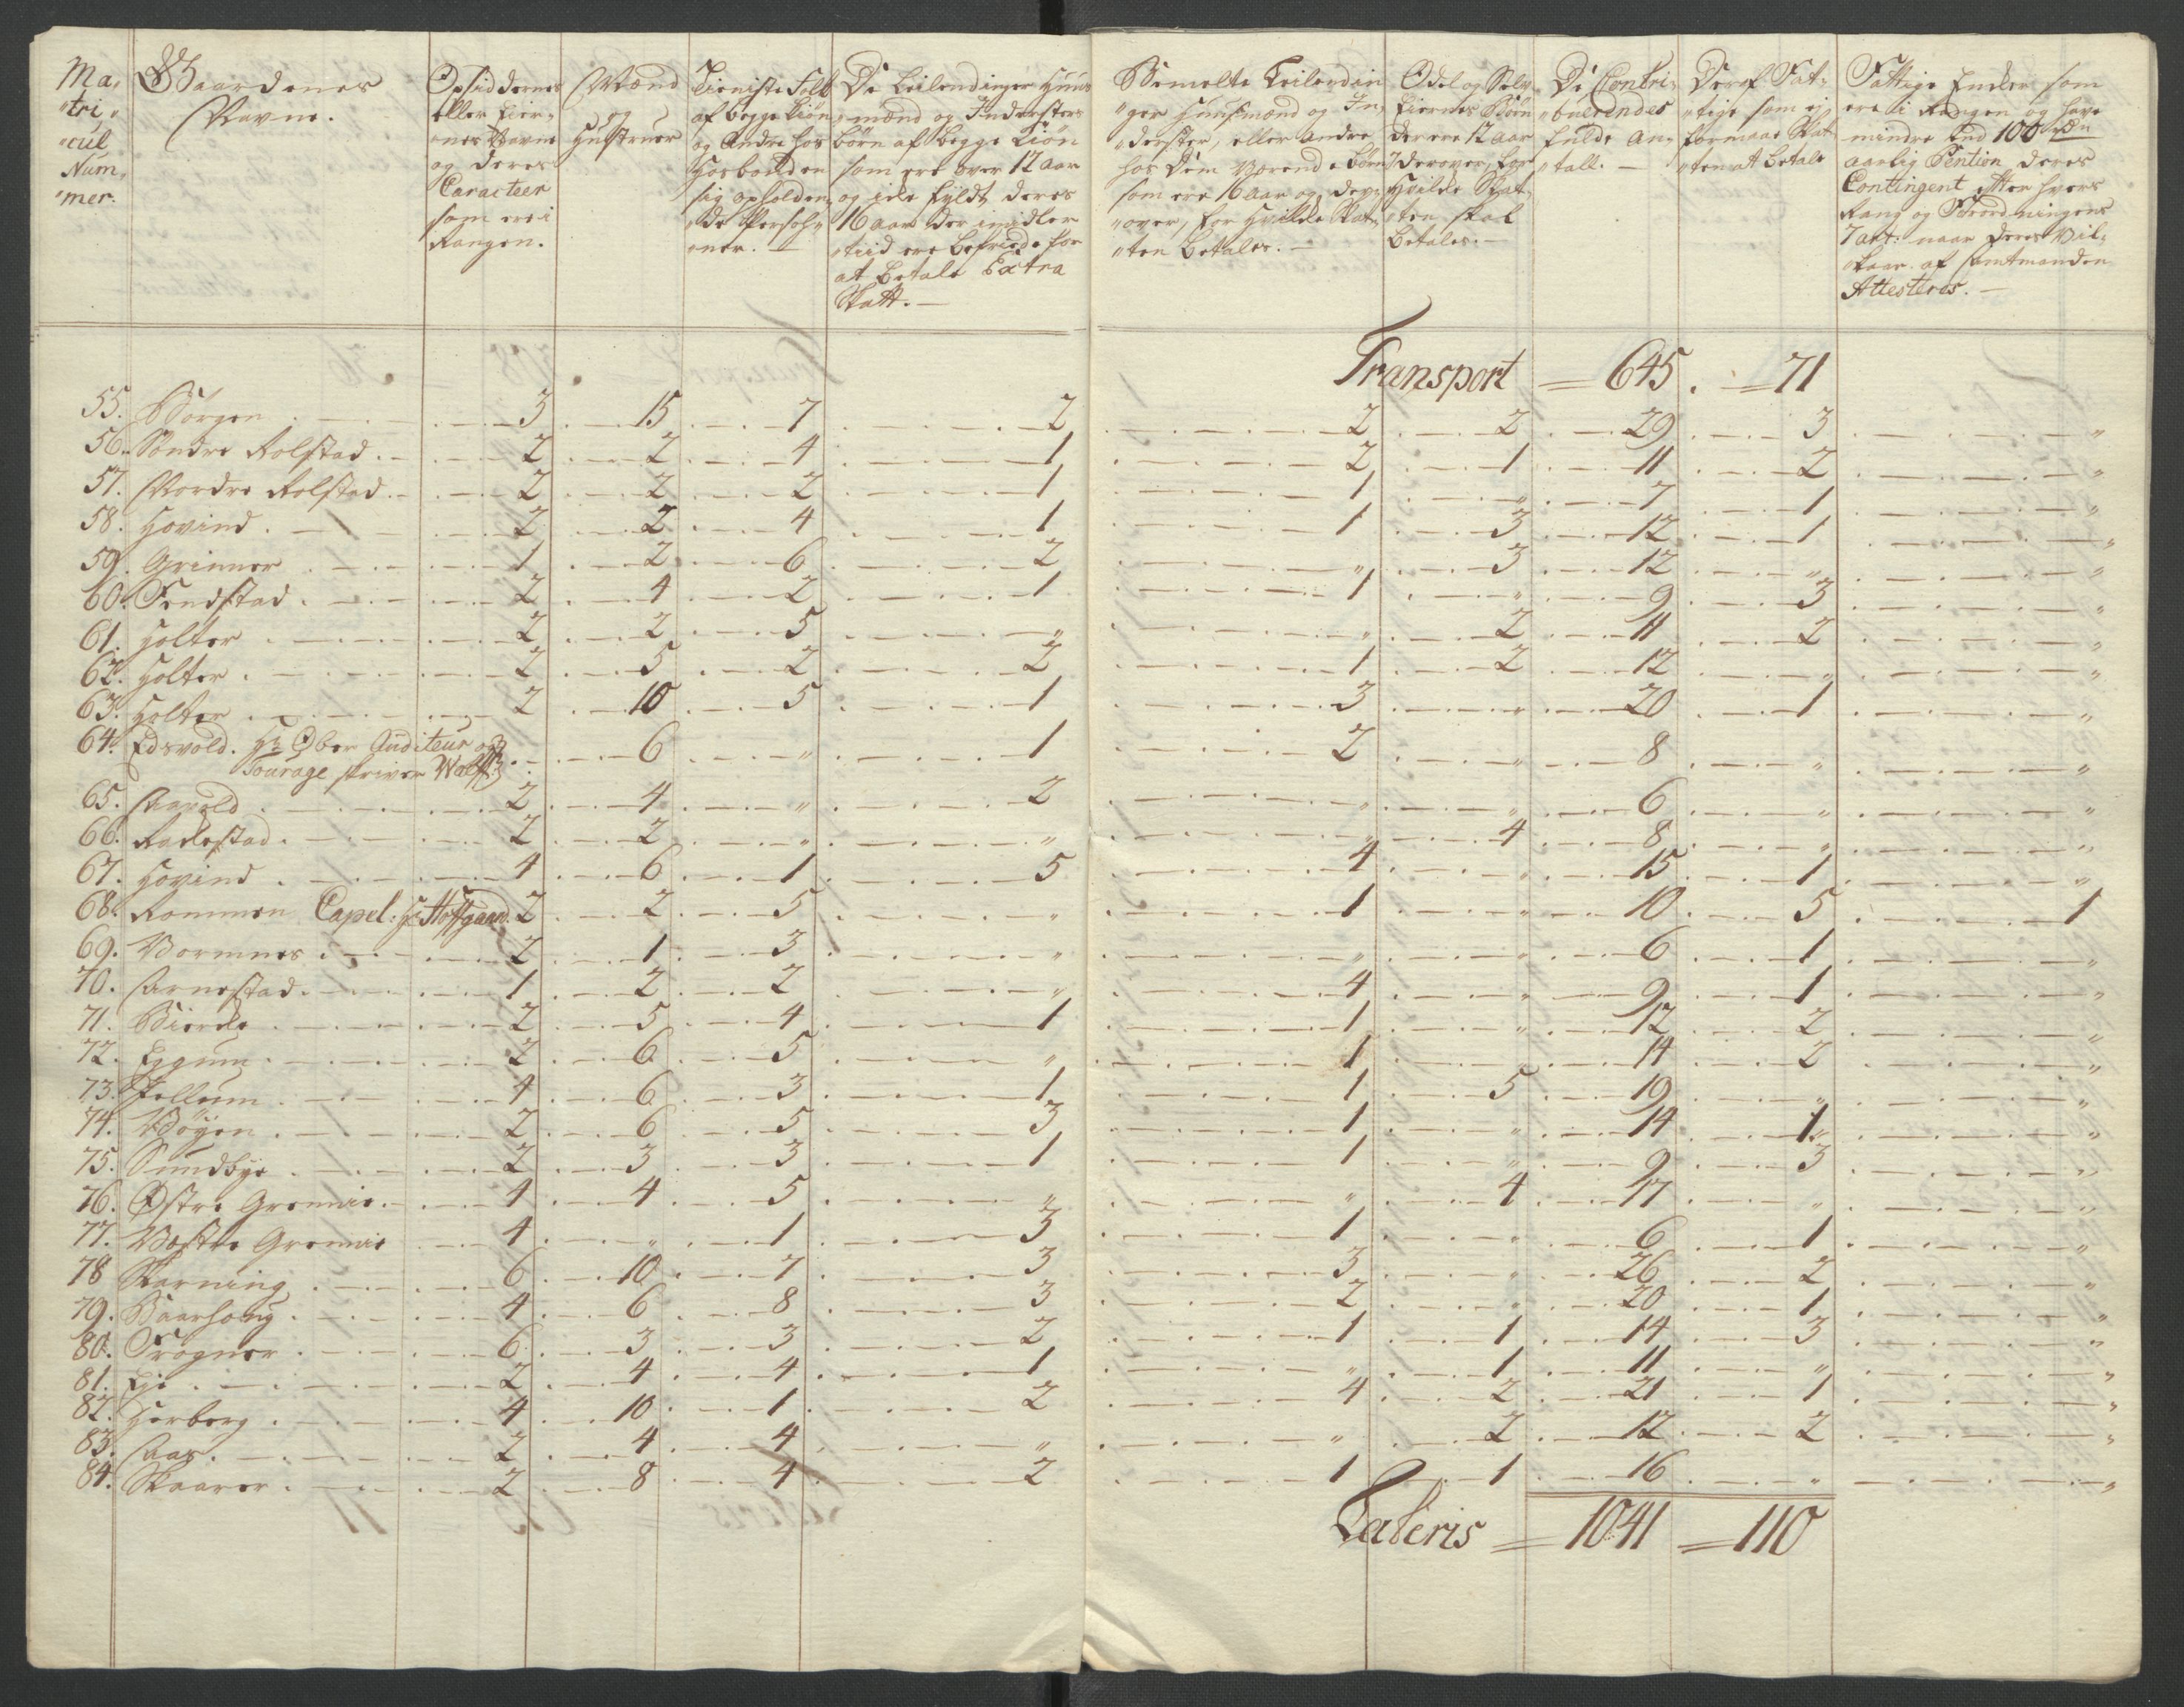 Ma„
„tri„
„cul
Num„
„mer:
Gaardenes
Navne.
Opsiddernes
eller Eier„
„nes Navne
og deres
Caracteer
som ere i
Rangen.
Mænd
og
Hustruer
Tieniste Folk
af begge Kiøn
og Andre hos
Hosbonden
sig opholden„
„de Persoh„
„ner. —
De Leilendinger Huus
„mænd og Indersters
børn af begge Kiøn
som ere over 12 aar
og icke fyldt deres
16 aar der imidler
„tiid ere befriede for
at betale Extra
Skatt. —
Bemelte Leilendin
„ger Huusmænd og In„
„derster, eller andre
hos Dem værende børn
som ere 16 aar og der„
„over, for hvilke Skat„
„ten betales. —
Odel og Selv
Eiernes Børn
der ere 12 aar
derover, for
hvilke Skat„
„ten skal
betales. —
De Contri„
„buerendes
fulde An„
„tall. —
Deraf Fat„
„tige som ej
formaar Skat
„ten at betale
Fattige Enker som
ere i Rangen og have
mindre end 100 rdr
aarlig Pention deres
Contingent efter hvers
Rang og Forordningens
7 art: naar deres Vil„
„kaar af Amtmanden
Attesteres. —
Transport = 645. = 71
55. Børgen 3 15 7 2 2 2 29 3 „
56. Søndre Rolstad 2 2 4 1 2 1 11 2 „
57. Nordre Rolstad 2 2 2 1 1 „ 7 1 „
58. Hovind 2 2 4 1 1 3 12 1 „
59. Grinner 1 2 6 2 „ 3 12 „ „
60. Findstad 2 4 2 1 1 „ 9 3 „
61. Holter 2 2 5 „ „ 2 11 2 „
62. Holter 2 5 2 2 1 2 12 „ „
63. Holter 2 10 5 1 3 „ 20 1 „
64. Edsvold. Hr Ober Auditeur og
Fourage skriver Wolff 6 „ 1 2 „ 8 „ „
65. Aavold 2 4 „ 2 „ „ 6 „ „
66. Rackestad 2 2 „ „ „ 4 8 „ „
67. Hovind 4 6 1 5 4 „ 15 1 „
68. Rommen Capel: Hr Hoffgaard. 2 2 5 „ 1 „ 10 5 1
69. Vormnes 2 1 3 „ „ „ 6 1 „
70. Arnestad 1 2 2 „ 4 „ 9 1 „
71. Bierke 2 5 4 1 1 „ 12 2 „
72. Eggum 2 6 5 „ 1 „ 14 2 „
73. Jellum 4 6 3 1 1 5 19 „ „
74. Bøyen 2 6 5 3 1 „ 14 1 „
75. Sundbye 2 3 3 1 1 „ 9 3 „
76. Østre Grennie 4 4 5 „ „ 4 17 „ „
77. Væstre Grennie 4 „ 1 3 1 „ 6 1 „
78 Skarning 6 10 7 3 3 „ 26 2 „
79. Baarhoug 4 6 8 3 2 „ 20 1 „
80. Trøgner 6 3 3 2 1 1 14 3 „
81. Eje 2 4 4 1 „ 1 11 „ „
82. Herberg 4 10 1 2 4 2 21 1 „
83. Aas 2 4 4 „ „ 2 12 2 „
84. Skaarer 2 8 4 2 1 1 16 „ „
Lateris = 1041 = 110